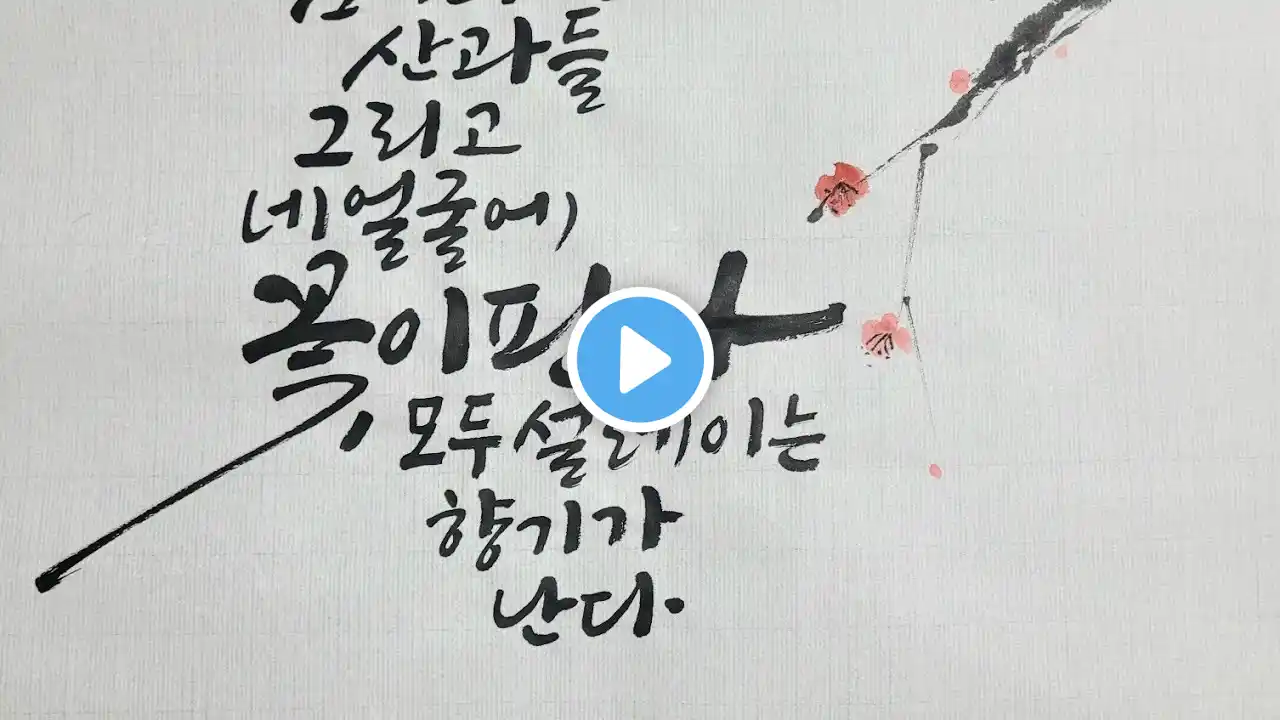 산과들
그리고
네얼굴에
꽃이핀다
모두설레이는
향기가
난다.